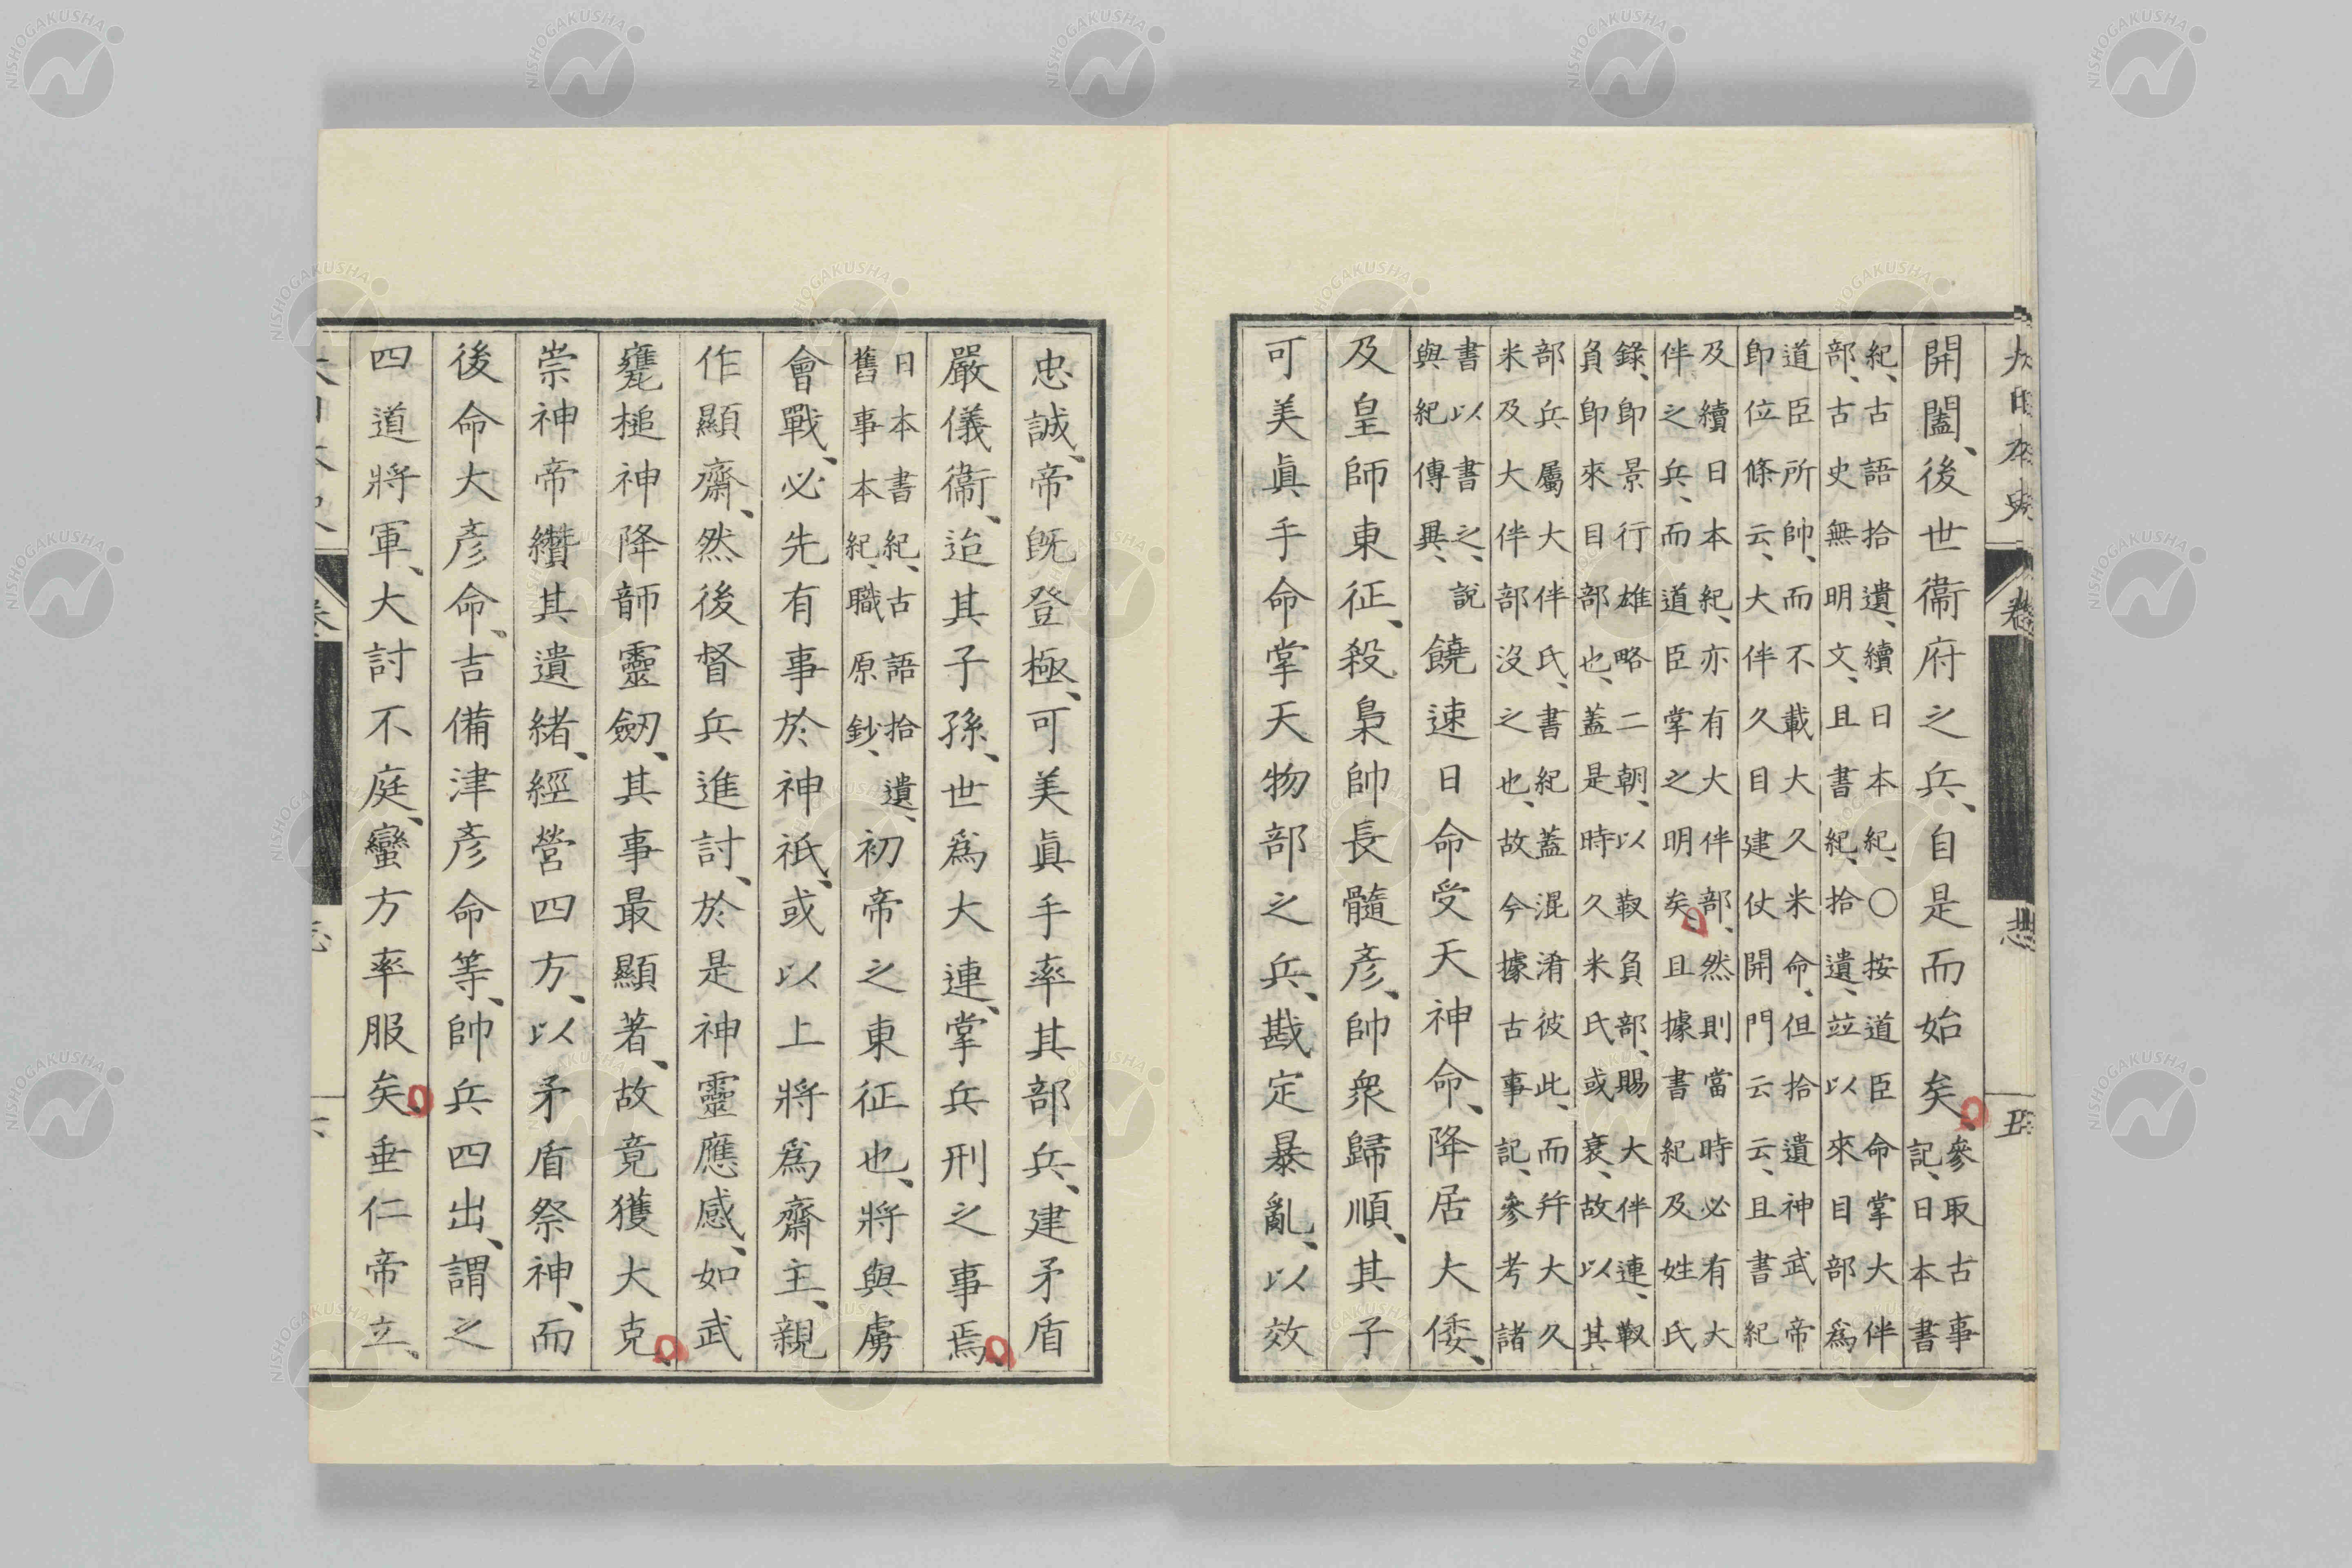 大日本史 卷 志 五
開闔、後世衞府之兵、自是而始矣、
參取古事
記、日本書
紀、古語拾遺、續日本紀、○按道臣命掌大伴
部、古史無明文、且書紀、拾遺、竝以來目部爲
道臣所帥、而不載大久米命、但拾遺神武帝
卽位條云、大伴久目建仗開門云云、且書紀
及續日本紀、亦有大伴部、然則當時必有大
伴之兵、而道臣掌之明矣、且據書紀及姓氏
錄、卽景行雄略二朝、以靫負部、賜大伴連、靫
負卽來目部也、蓋是時久米氏或衰、故以其
部兵屬大伴氏、書紀蓋混淆彼此、而幷大久
米及大伴部沒之也、故今據古事記、參考諸
書以書之、說
與紀傳異、
饒速日命受天神命、降居大倭、
及皇師東征、殺梟帥長髓彥、帥衆歸順、其子
可美眞手命掌天物部之兵、戡定暴亂、以效
忠誠、帝旣登極、可美眞手率其部兵、建矛盾
嚴儀衞、迨其子孫、世爲大連、掌兵刑之事焉、
日本書紀、古語拾遺、
舊事本紀、職原鈔、
初帝之東征也、將與虜
會戰、必先有事於神祇、或以上將爲齋主、親
作顯齋、然後督兵進討、於是神靈應感、如武
甕槌神降韴靈劒、其事最顯著、故竟獲大克、
崇神帝纘其遺緖、經營四方、以矛盾祭神、而
後命大彥命、吉備津彥命等、帥兵四出、謂之
四道將軍、大討不庭、蠻方率服矣、垂仁帝立、